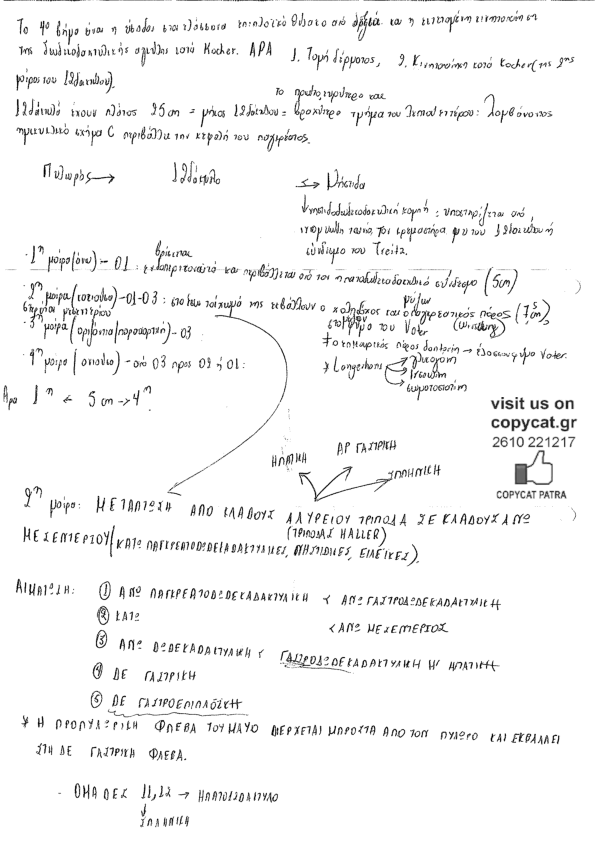 Το 4ο βήμα είναι η είσοδος στον ελάσσονα επιπλοϊκό θύλακο και η κινητοποίηση
της δωδεκαδακτυλικής αγκύλης κατά Kocher. ΑΡΑ 1. Τομή δέρματος, 2. Κινητοποίηση κατά Kocher (της 2ης
μοίρας του 12δακτύλου).
Το πρώτο, ευρύτερο και
12δάκτυλο έχουν πλάτος 25cm = μήκος 12δακτύλου = βραχύτερο τμήμα του λεπτού εντέρου: λαμβάνοντας
ημικυκλικό σχήμα C περιβάλλει την κεφαλή του παγκρέατος.
Πυλωρός → 12δάκτυλο Νήστιδα
νηστιδοδωδεκαδακτυλική καμπή: υποστηρίζεται από
τον κρεμαστήρα μυ του 12δακτύλου ή
σύνδεσμο του Treitz.
· 1η μοίρα (άνω) - Ο1: βρίσκεται ενδοπεριτοναϊκά και περιβάλλεται από τον ηπατοδωδεκαδακτυλικό σύνδεσμο (5cm)
· 2η μοίρα (κατιούσα) - Ο1-Ο3: στο τοίχωμά της εκβάλλουν ο χοληδόχος και ο παγκρεατικός πόρος (7,5 cm)
μείζων
(Wirsung)
στο φύμα του Vater
· 3η μοίρα (οριζόντια/παρααορτική) - Ο3
· 4η μοίρα (ανιούσα) - από Ο3 προς Ο2 ή Ο1:
* ο επικουρικός πόρος Santorini → έλασσον φύμα Vater.
* Langerhans → γλυκαγόνη
→ Ινσουλίνη
→ σωματοστατίνη
Άρα 1η ← 5 cm → 4η
visit us on
copycat.gr
2610 221217
COPYCAT PATRA
ΗΠΑΤΙΚΗ ΑΡ ΓΑΣΤΡΙΚΗ ΣΠΛΗΝΙΚΗ
2η μοίρα: ΜΕΤΑΠΤΩΣΗ ΑΠΟ ΚΛΑΔΟΥΣ ΑΛΥΡΕΙΟΥ ΤΡΙΠΟΔΑ ΣΕ ΚΛΑΔΟΥΣ ΑΝΩ
(ΤΡΙΠΟΔΑΣ HALLER)
ΜΕΣΕΝΤΕΡΙΟΥ (ΚΑΤΩ ΠΑΓΚΡΕΑΤΟΔΩΔΕΚΑΔΑΚΤΥΛΙΚΕΣ, ΝΗΣΤΙΔΙΚΕΣ, ΕΙΛΕΪΚΕΣ).
ΑΙΜΑΤΩΣΗ: ① ΑΝΩ ΠΑΓΚΡΕΑΤΟΔΩΔΕΚΑΔΑΚΤΥΛΙΚΗ < ΑΝΩ ΓΑΣΤΡΟΔΩΔΕΚΑΔΑΚΤΥΛΙΚΗ
② ΚΑΤΩ < ΑΝΩ ΜΕΣΕΝΤΕΡΙΟΣ
③ ΑΝΩ ΔΩΔΕΚΑΔΑΚΤΥΛΙΚΗ < ΓΑΣΤΡΟΔΩΔΕΚΑΔΑΚΤΥΛΙΚΗ Η' ΗΠΑΤΙΚΗ
④ ΔΕ ΓΑΣΤΡΙΚΗ
⑤ ΔΕ ΓΑΣΤΡΟΕΠΙΠΛΟΪΚΗ
* Η ΠΡΟΠΥΛΩΡΙΚΗ ΦΛΕΒΑ ΤΟΥ ΜΑΥΟ ΔΙΕΡΧΕΤΑΙ ΜΠΡΟΣΤΑ ΑΠΟ ΤΟΝ ΠΥΛΩΡΟ ΚΑΙ ΕΚΒΑΛΛΕΙ
ΣΤΗ ΔΕ ΓΑΣΤΡΙΚΗ ΦΛΕΒΑ.
- ΟΜΑΔΕΣ 11, 12 → ΗΠΑΤΟΔΩΔΑΚΤΥΛΟ
↓
ΣΠΛΗΝΙΚΗ